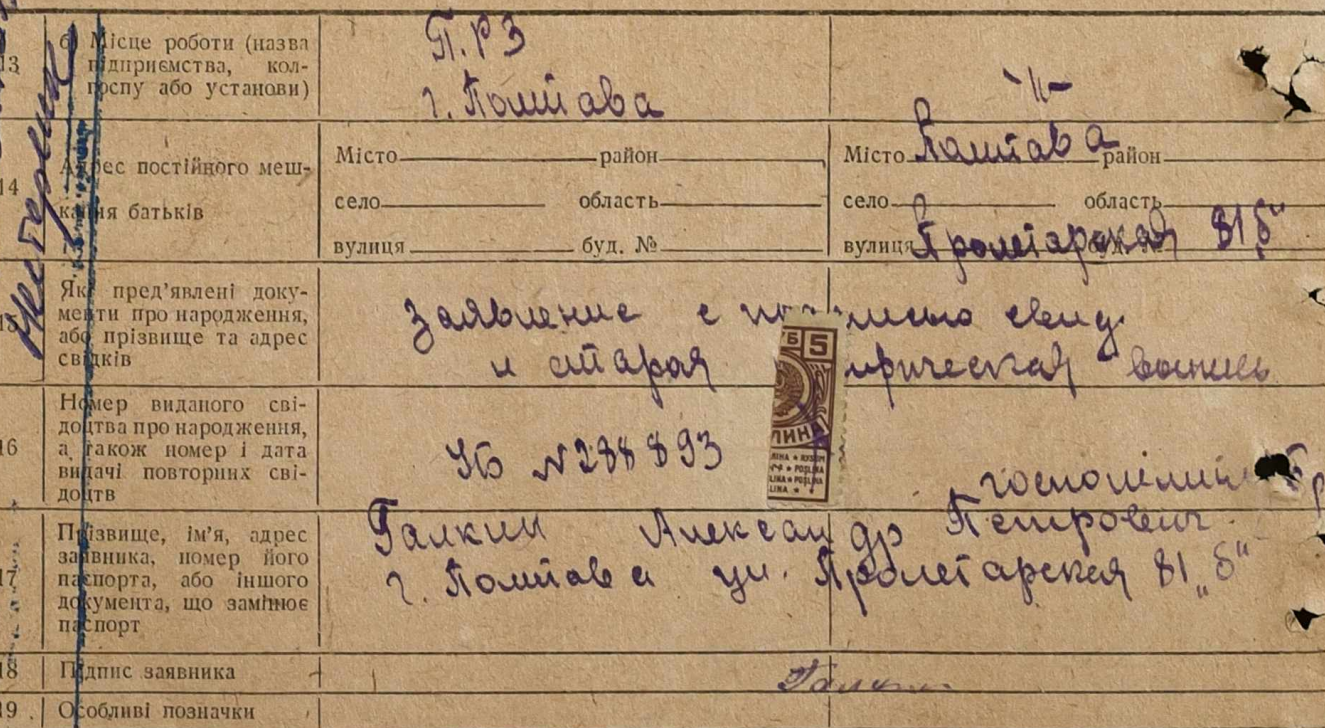 13
б) Місце роботи (назва
підприємства, кол-
госпу або установи)
П.Р З
г. Полтава
-"-
14
Адрес постійного меш-
кання батьків
Місто район
село область
вулиця буд. №
Місто Полтава район
село область
вулиця Пролетарская 81 б"
15
Які пред'явлені доку-
менти про народження,
або прізвище та адрес
свідків
Заявление с свид.
и старая
16
Номер виданого сві-
доцтва про народження,
а також номер і дата
видачі повторних сві-
доцтв
УБ №288893
5
ЛИНА
POŞLINA
LINA
17
Прізвище, ім'я, адрес
заявника, номер його
паспорта, або іншого
документа, що замінює
паспорт
Галкин Александр Петрович
г. Полтава ул. Пролетарская 81 „б"
18
Підпис заявника
Галкин
19
Особливі позначки